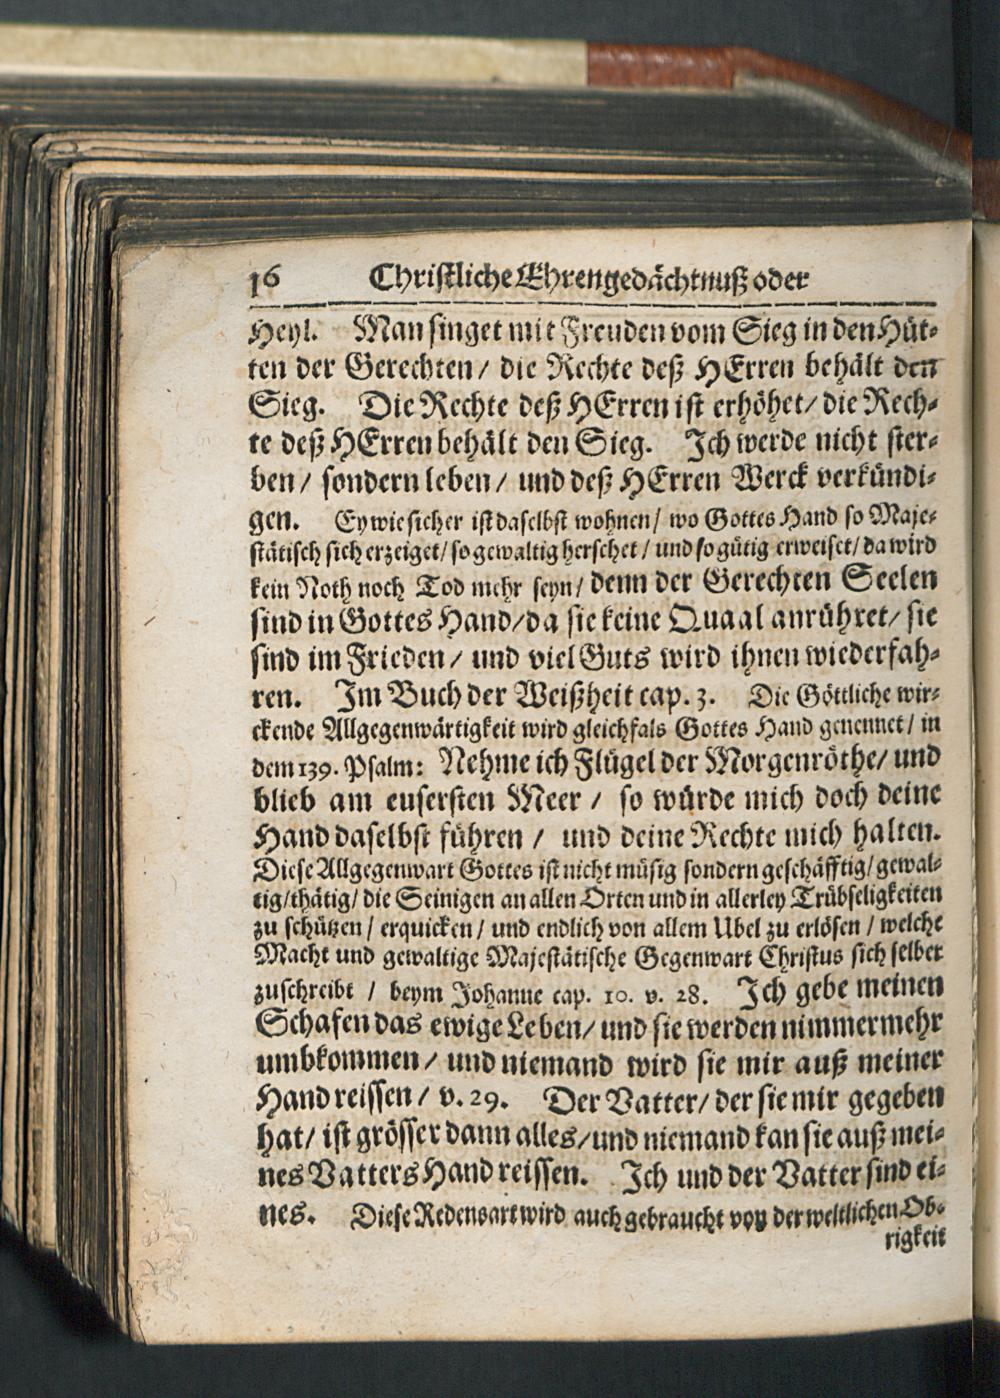 16 Christliche Ehrengedächtnuß oder
Heyl. Man singet mit Freuden vom Sieg in den Hüt-
ten der Gerechten / die Rechte deß HErren behält den
Sieg. Die Rechte deß HErren ist erhöhet / die Rech-
te deß HErren behält den Sieg. Ich werde nicht ster-
ben / sondern leben / und deß HErren Werck verkündi-
gen. Ey wie sicher ist daselbst wohnen / wo Gottes Hand so Maje-
stätisch sich erzeiget / so gewaltig herschet / und so gütig erweiset / da wird
kein Noth noch Tod mehr seyn / denn der Gerechten Seelen
sind in Gottes Hand / da sie keine Quaal anrühret / sie
sind im Frieden / und viel Guts wird ihnen wiederfah-
ren. Im Buch der Weißheit cap. 3. Die Göttliche wir-
ckende Allgegenwärtigkeit wird gleichfals Gottes Hand genennet / in
dem 139. Psalm: Nehme ich Flügel der Morgenröthe / und
blieb am eusersten Meer / so würde mich doch deine
Hand daselbst führen / und deine Rechte mich halten.
Diese Allgegenwart Gottes ist nicht müsig sondern geschäfftig / gewal-
tig / thätig / die Seinigen an allen Orten und in allerley Trübseligkeiten
zu schützen / erquicken / und endlich von allem Ubel zu erlösen / welche
Macht und gewaltige Majestätische Gegenwart Christus sich selber
zuschreibt / beym Johanne cap. 10. v. 28. Ich gebe meinen
Schafen das ewige Leben / und sie werden nimmermehr
umbkommen / und niemand wird sie mir auß meiner
Hand reissen / v. 29. Der Vatter / der sie mir gegeben
hat / ist grösser dann alles / und niemand kan sie auß mei-
nes Vatters Hand reissen. Ich und der Vatter sind ei-
nes. Diese Redensart wird auch gebraucht von der weltlichen Ob-
rigkeit